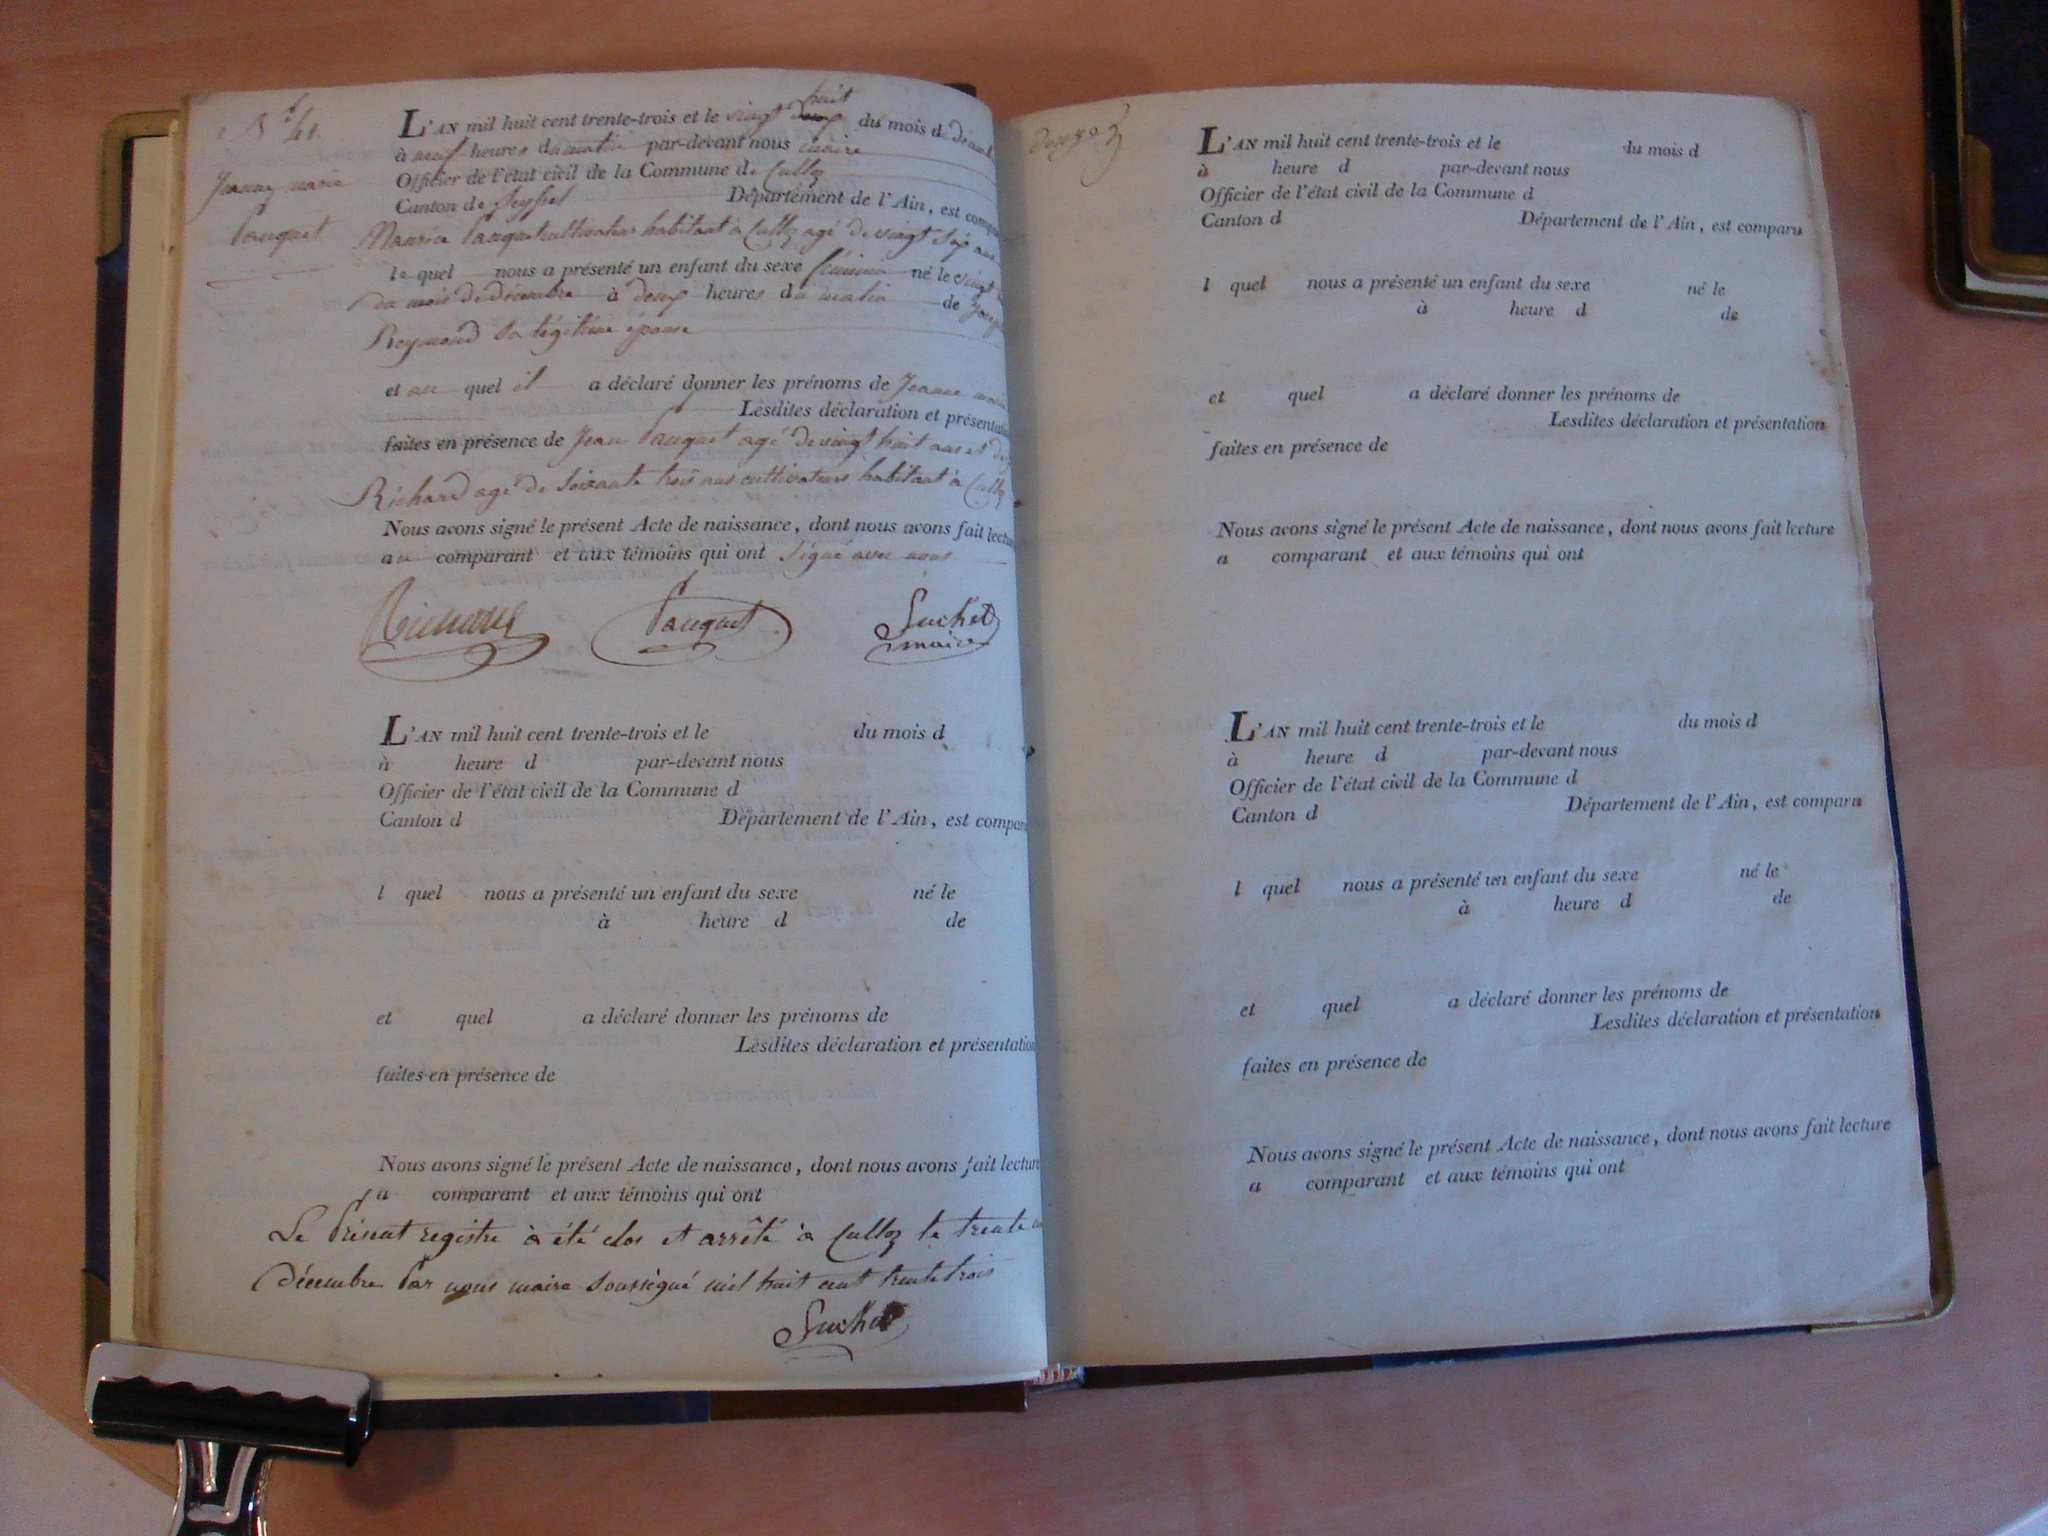 N.º 41.
Jeanne marie
Pauquet
L'AN mil huit cent trente-trois et le vingt deux huit du mois de décemb
à neuf heures du matin par-devant nous maire
Officier de l'état civil de la Commune de Culloz
Canton de Seyssel Département de l'Ain, est comparu
Maurice Pauquet cultivateur habitant à Culloz agé de vingt six ans
le quel nous a présenté un enfant du sexe féminin né le vingt
du mois de décembre à deux heures du matin de
Reymond sa légitime épouse
et au quel il a déclaré donner les prénoms de Jeanne marie
Lesdites déclaration et présentation
faites en présence de Jean Pauquet agé de vingt huit ans et de
Richard agé de soixante trois ans cultivateurs habitant à Culloz
Nous avons signé le présent Acte de naissance, dont nous avons fait lecture
au comparant et aux témoins qui ont signé avec nous
Richard Pauquet Suchet
maire
L'AN mil huit cent trente-trois et le du mois d
à heure d par-devant nous
Officier de l'état civil de la Commune d
Canton d Département de l'Ain, est comparu
l quel nous a présenté un enfant du sexe né le
à heure d de
et quel a déclaré donner les prénoms de
Lesdites déclaration et présentation
faites en présence de
Nous avons signé le présent Acte de naissance, dont nous avons fait lecture
a comparant et aux témoins qui ont
Le Présent registre à été clos et arrêté à Culloz le trente
décembre Par nous maire soussigné mil huit cent trente trois
Suchet
L'AN mil huit cent trente-trois et le du mois d
à heure d par-devant nous
Officier de l'état civil de la Commune d
Canton d Département de l'Ain, est comparu
l quel nous a présenté un enfant du sexe né le
à heure d de
et quel a déclaré donner les prénoms de
Lesdites déclaration et présentation
faites en présence de
Nous avons signé le présent Acte de naissance, dont nous avons fait lecture
a comparant et aux témoins qui ont
L'AN mil huit cent trente-trois et le du mois d
à heure d par-devant nous
Officier de l'état civil de la Commune d
Canton d Département de l'Ain, est comparu
l quel nous a présenté un enfant du sexe né le
à heure d de
et quel a déclaré donner les prénoms de
Lesdites déclaration et présentation
faites en présence de
Nous avons signé le présent Acte de naissance, dont nous avons fait lecture
a comparant et aux témoins qui ont